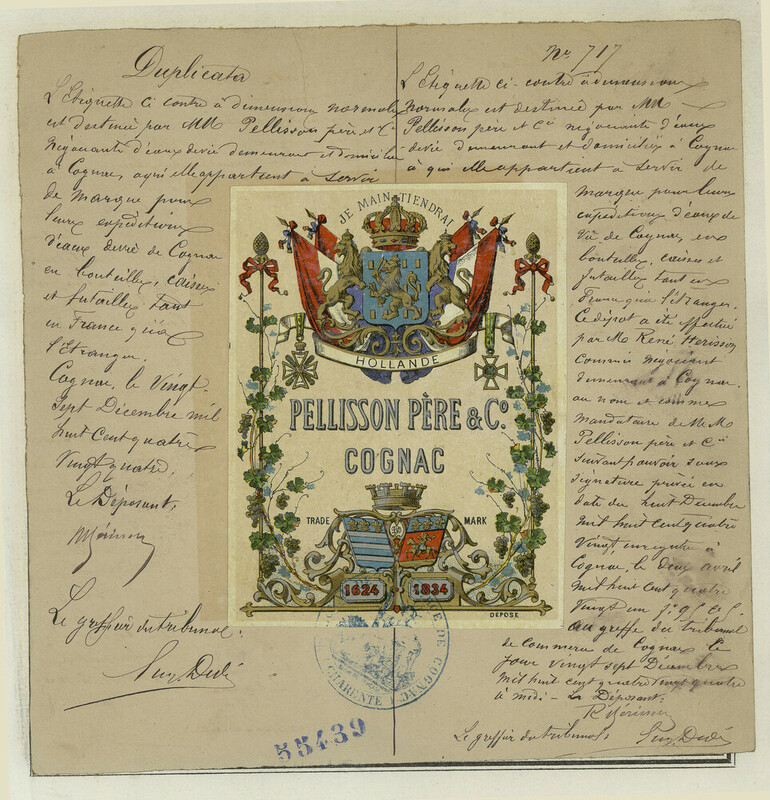 Duplicata
L'Etiquette ci contre à dimensions normales
est destinée par MM Pellisson père et Cie
Négociants d'eaux devie demeurant et domiciliés
à Cognac, à qui elle appartient à servir
de marque pour
leurs expéditions
d'eaux devie de Cognac
en bouteilles, caisses
et futailles tant
en France qu'à
l'Etranger.
Cognac, le Vingt
Sept Décembre mil
huit cent quatre
Vingt quatre.
Le Déposant,
Le greffier du tribunal.
Nº 717
L'Etiquette ci-contre à dimensions
Normales est destinée par MM
Pellisson père et Cie négociants d'eaux
devie demeurant et domiciliés à Cognac
à qui elle appartient à servir de
marque pour leurs
expéditions d'eaux de
Vie de Cognac, en
bouteilles, caisses et
futailles tant en
France qu'à l'étranger.
Ce dépôt a été effectué
par M. René Herisson
commis négociant
demeurant à Cognac,
au nom et comme
Mandataire de MM
Pellisson père et Cie
suivant pouvoir sous
signature privée en
date du huit Décembre
mil huit cent quatre
Vingt enregistré à
Cognac, le deux avril
mil huit cent quatre
Vingt un
au greffe du tribunal
de Commerce de Cognac le
jour vingt sept Décembre
mil huit cent quatre vingt quatre
à midi - Le Déposant.
R Hérisson
Le greffier du tribunal
JE MAINTIENDRAI
HOLLANDE
PELLISSON PÈRE & Cº
COGNAC
TRADE MARK
1624 1834
DEPOSE
DE COGNAC
CHARENTE
55439